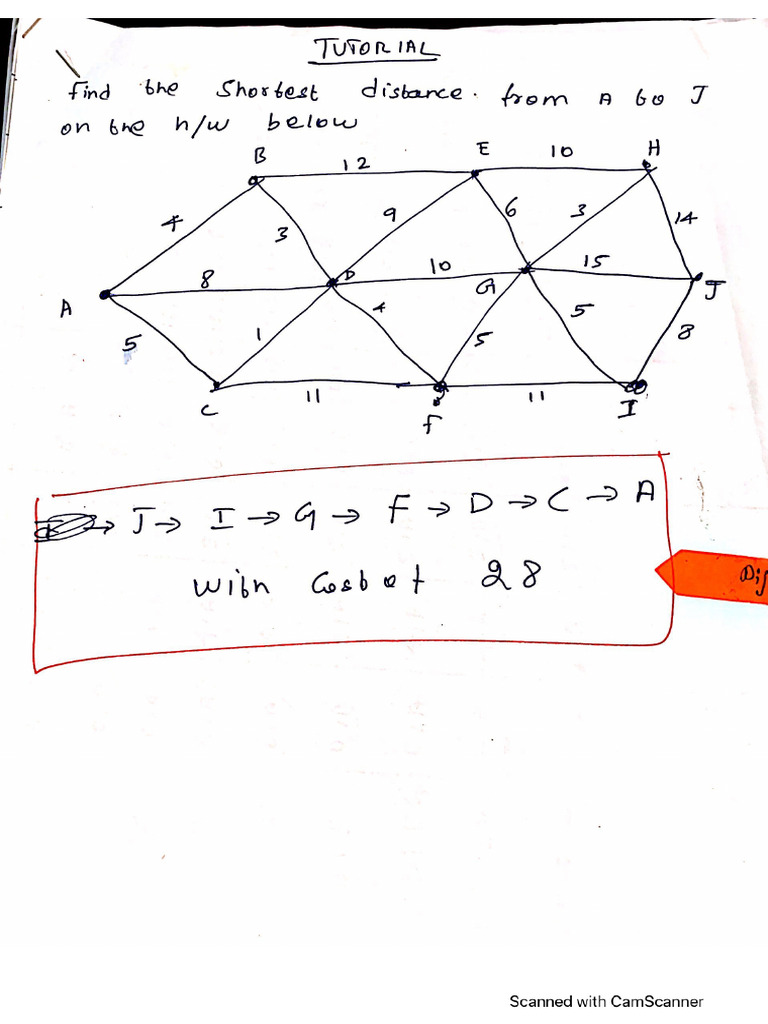 TUTORIAL
find the Shortest distance. from A to J
on the n/w below
B 12 E 10 H
4 3 9 6 3 14
A 8 D 10 G 15 J
5 1 4 5 5 8
C 11 F 11 I
→ J → I → G → F → D → C → A
With Cost of 28
Dif
Scanned with CamScanner